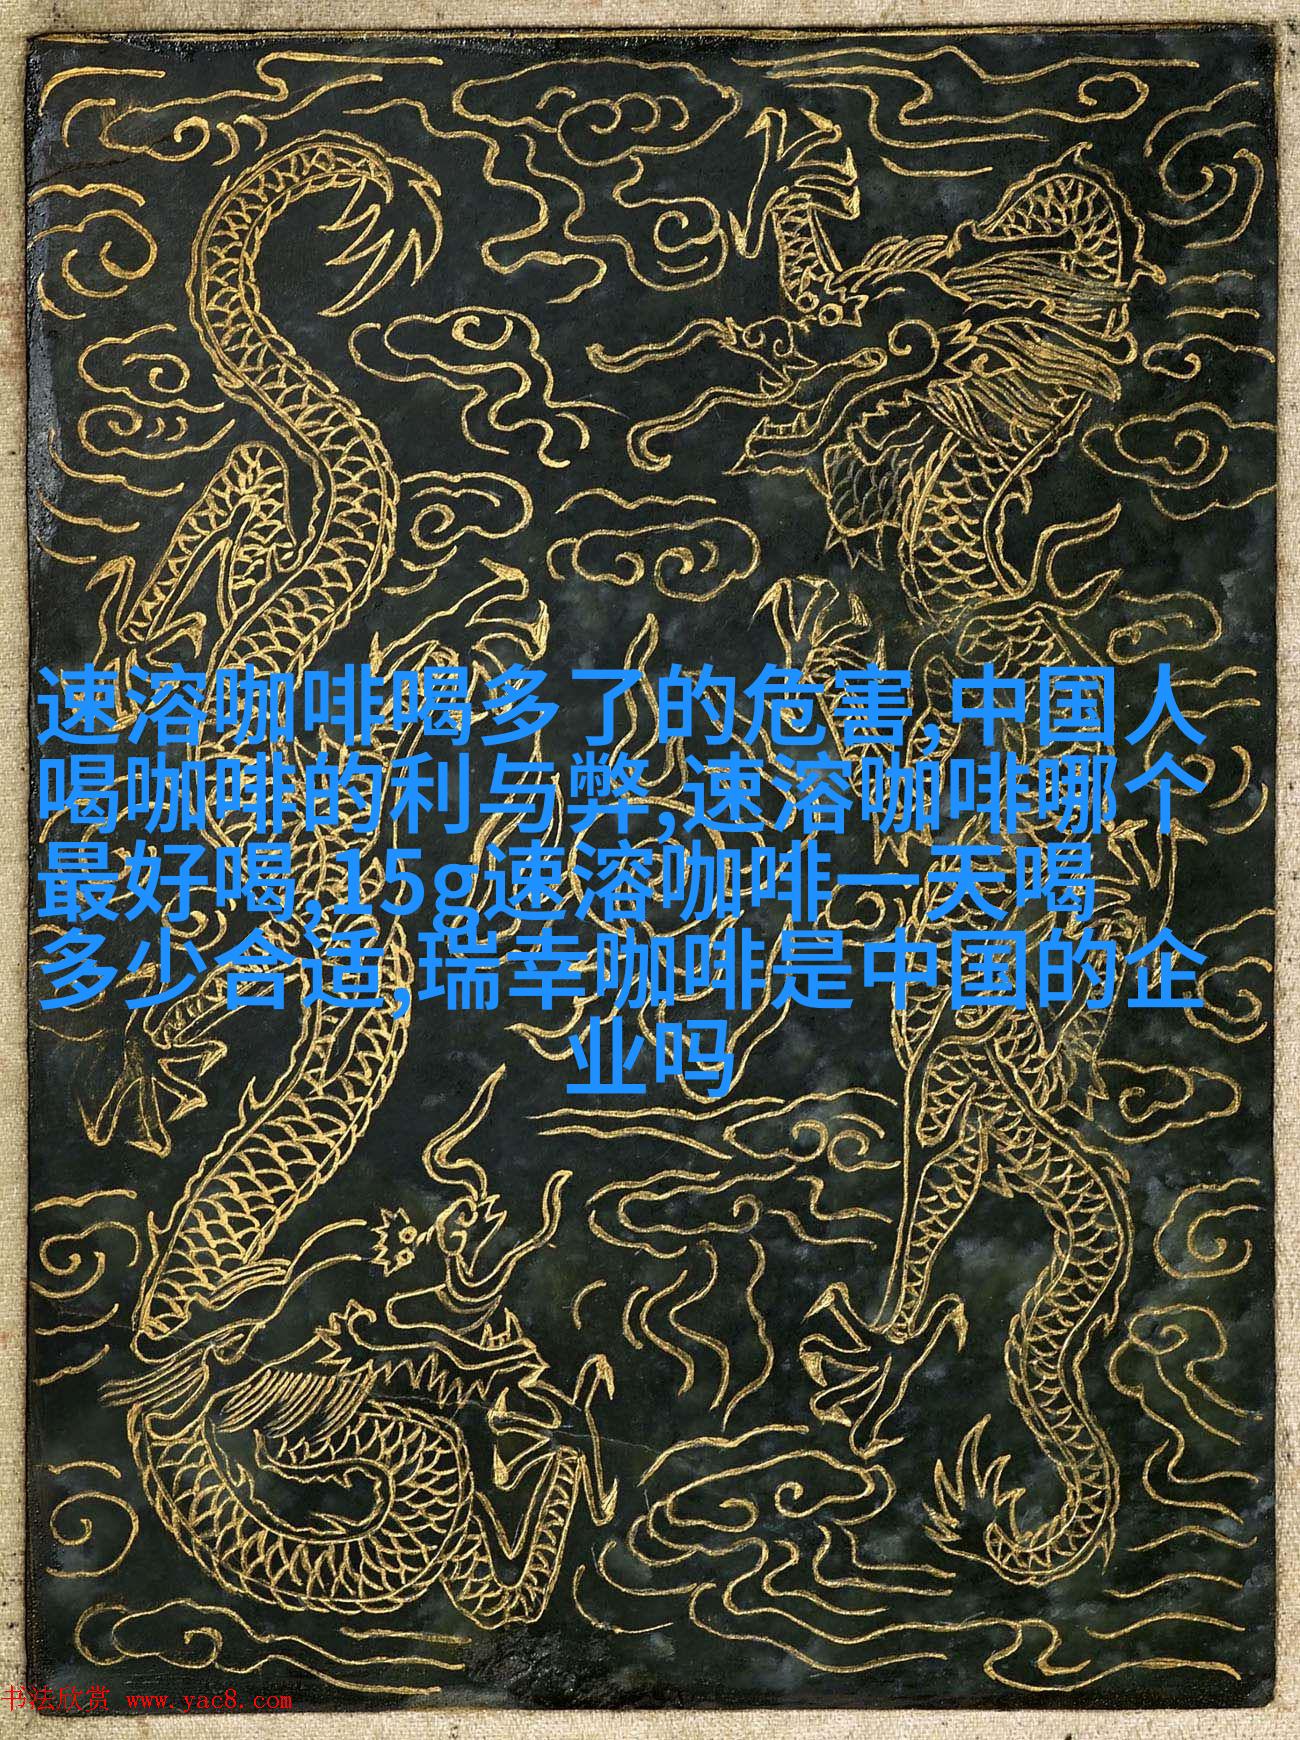 速溶咖啡喝多了的危害,中国人
喝咖啡的利与弊,速溶咖啡哪个
最好喝,15g速溶咖啡一天喝
多少合适,瑞幸咖啡是中国的企
业吗
书法欣赏 www.yac8.com